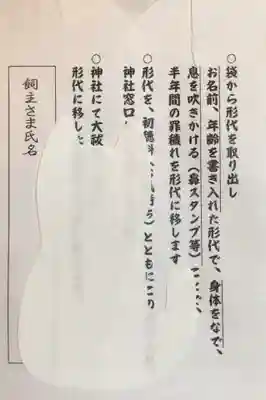 ○袋から形代を取り出し
お名前、年齢を書き入れた形代で、身体をなで、
息を吹きかける（鼻スタンプ等）
半年間の罪穢れを形代に移します
○形代を、初穂料 とともに
神社窓口
○神社にて大祓
形代に移した
飼主さま氏名